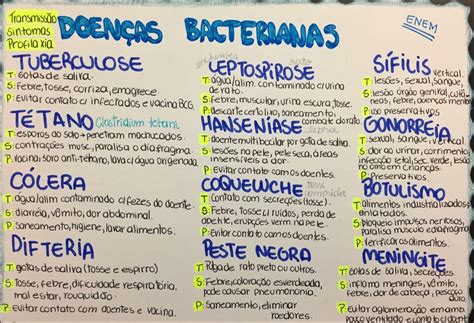 Transmissão
Sintomas
Profilaxia
DOENÇAS BACTERIANAS
ENEM
TUBERCULOSE
T: Gotas de saliva.
S: Febre, tosse, corriza, emagrece
P: Evitar contato c/ infectados e vacina BCG.
TÉTANO Clostridium tetani
T: esporos ao solo penetram machucados.
S: contrações musc, paralisa o diafragma.
P: Vacina soro anti-tétano, lava c/ água oxigenada.
CÓLERA
T: água/alim contaminado c/ fezes do doente.
S: diarreia, vômito, dor abdominal.
P: Saneamento, higiene, lavar alimentos.
DIFTERIA
T: gotas de saliva (tosse e espirro)
S: Tosse, febre, dificuldade respiratória,
mal estar, rouquidão.
P: Evitar contato com doentes e vacina.
LEPTOSPIROSE
T: água/alim. contaminado c/ urina
de rato.
S: Febre, muscular, urina escura, tosse.
P: descarte certo lixo, saneamento,
combate do rato.
HANSENÍASE
T: doente multibacilar por gota de saliva.
S: lesões na pele, pele seca, áreas
insensíveis a dor
P: Evitar contato com os doentes.
COQUELUCHE
T: Contato com secreções (tosse).
S: Febre, tosse c/ ruídos, perda de
apetite, erupções verm na pele.
P: Evitar contato com os doentes.
PESTE NEGRA
T: Pulga de rato preto ou outros.
S: Febre, coloração esverdeada,
pode causar pneumonia.
P: Saneamento, eliminar
roedores.
SÍFILIS vertical
T: lesões, sexual, sangue,
S: lesão órgão genital, cutâ-
neas, febre, doenças mentais
P: uso preservativos
GONORREIA
T: Sexual, sangue, vertical.
S: dor ao urinar, corrimento,
infecção retal, sec. verde, lesão
na criança.
P: Preservativos.
BOTULISMO
T: alimentos contaminados
industrializados enlatados
S: bloqueio impulsos nervosos,
paralisa músculo e diafragma
P: Verificar os alimentos.
MENINGITE
T: Gotas de saliva, secreções
S: inflama meninges, vômito,
febre, dor de cabeça, pescoço
P: evitar aglomeração em amb
pouco ventilado e contato c/ doente